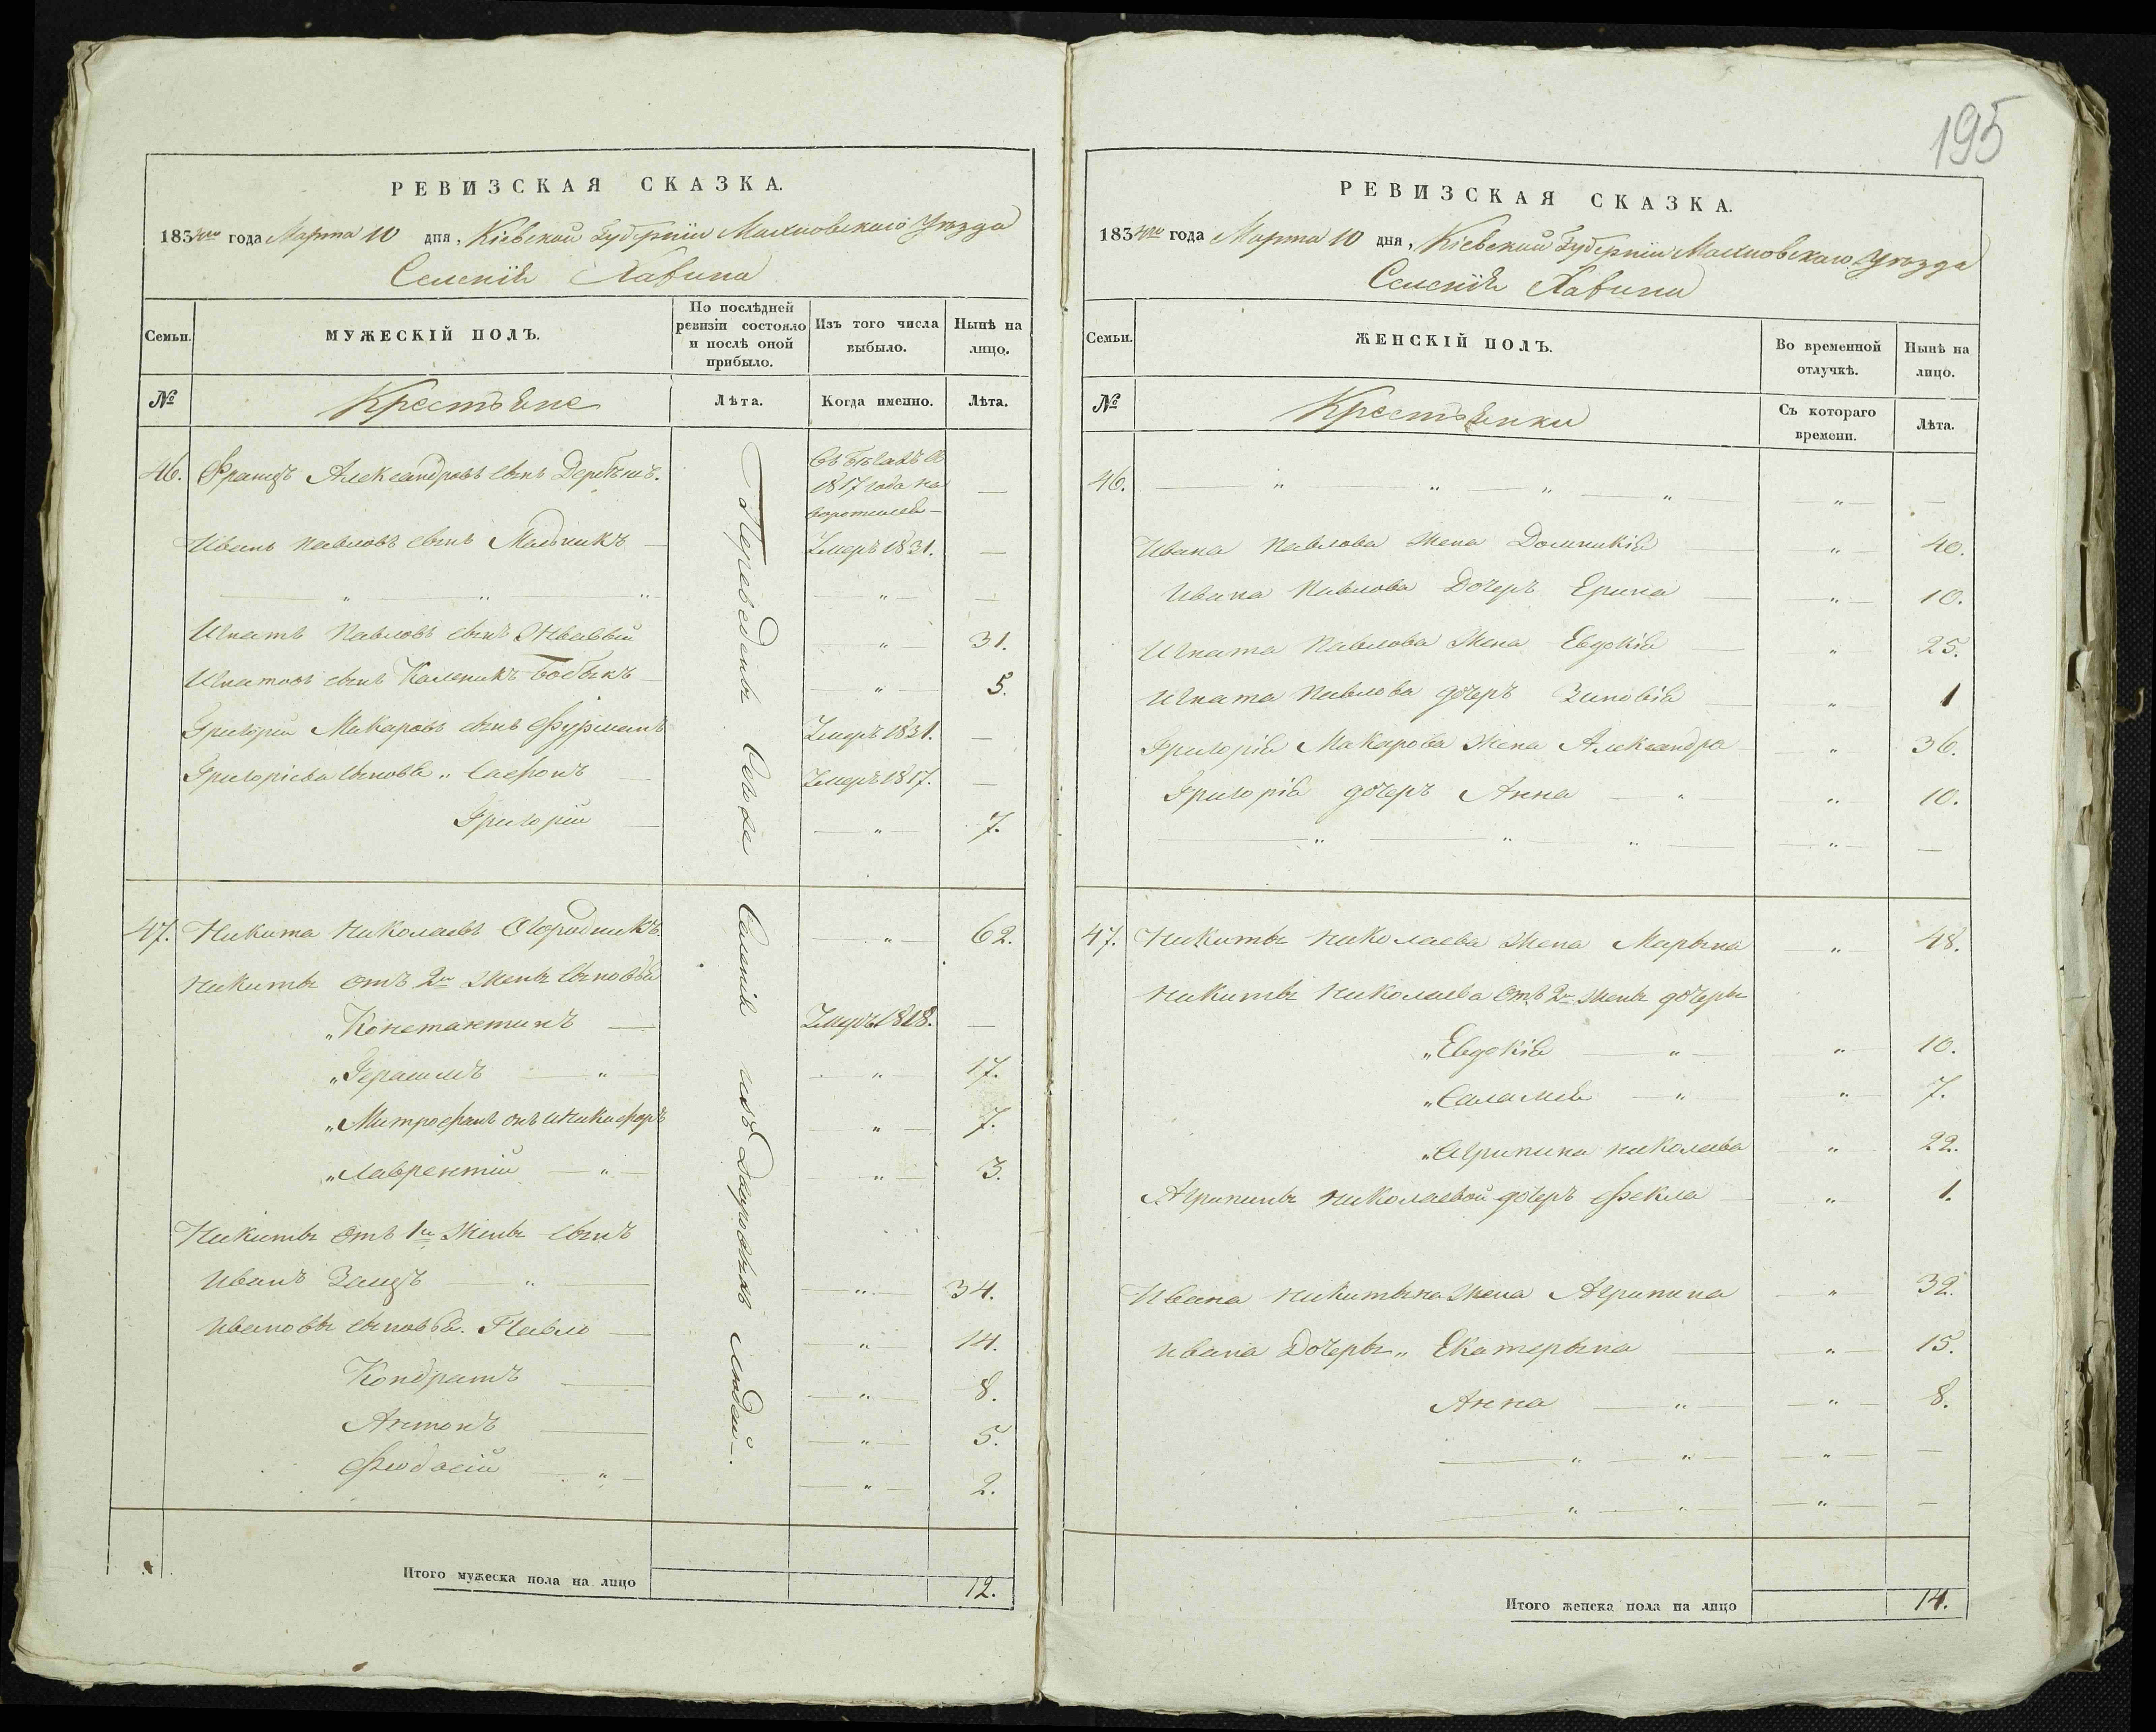 195
РЕВИЗСКАЯ СКАЗКА.
1834го года Марта 10 дня, Кіевской Губерніи Махновскаго Уѣзда
Селенія Хавина
Семьи.
МУЖЕСКІЙ ПОЛЪ.
По послѣдней ревизіи состояло и послѣ оной прибыло.
Изъ того числа выбыло.
Нынѣ на лицо.
№
Крестьяне
Лѣта.
Когда именно.
Лѣта.
Переведены сюда изъ Селенія людей
46. Францъ Александровъ сынъ
1817 года
—
Иванъ Павловъ сынъ Мельникъ — Умеръ 1831. —
— „ — „ — „ — „ — —
Игнатъ Павловъ сынъ — „ — 31.
Игнатовъ сынъ Каленикъ — „ — 5.
Григорій Макаровъ сынъ Фурманъ Умеръ 1831. —
Григоріева сыновья „ Сафонъ — Умеръ 1817. —
Григорій — — „ — 7.
47. Никита Николаевъ Огородникъ — „ — 62.
Никиты отъ 2й жены сыновья
„Константинъ — Умеръ 1818. —
„Герасимъ — „ — — „ — 17.
„Митрофанъ онъ и Никифоръ — „ — 7.
„Лаврентій — „ — — „ — 3.
Никиты отъ 1й жены сынъ
Иванъ Заяцъ — „ — — „ — 34.
Ивановы сыновья. Павло — — „ — 14.
Кондратъ — — „ — 8.
Антонъ — — „ — 5.
Феодосій — „ — — „ — 2.
Итого мужеска пола на лицо 12.
РЕВИЗСКАЯ СКАЗКА.
1834го года Марта 10 дня, Кіевской Губерніи Махновскаго Уѣзда
Селенія Хавина
Семьи.
ЖЕНСКІЙ ПОЛЪ.
Во временной отлучкѣ.
Нынѣ на лицо.
№
Крестьянки
Съ котораго времени.
Лѣта.
46. — „ — „ — „ — „ — „ — —
Ивана Павлова жена Домникія — „ — 40.
Ивана Павлова дочеръ Ерина — — „ — 10.
Игната Павлова жена Евдокія — „ 25.
Игната Павлова дочеръ Зиновія — „ 1
Григорія Макарова жена Александра — „ 36.
Григорія дочеръ Анна — „ — — „ — 10.
— „ — „ — „ — — „ — —
47. Никиты Николаева жена Марына „ 48.
Никиты Николаева отъ 2й жены дочеры
„Евдокія — „ „ 10.
„Саламія — „ „ 7.
„Агрипина Николаева „ 22.
Агрипины Николаевой дочеръ Фекла — „ 1.
Ивана Никитына жена Агрипина — „ 32.
Ивана дочеры „ Екатерына — — „ — 15.
Анна — „ — — „ — 8.
— „ — „ — — „ — —
— „ — „ — — „ — —
Итого женска пола на лицо 14.